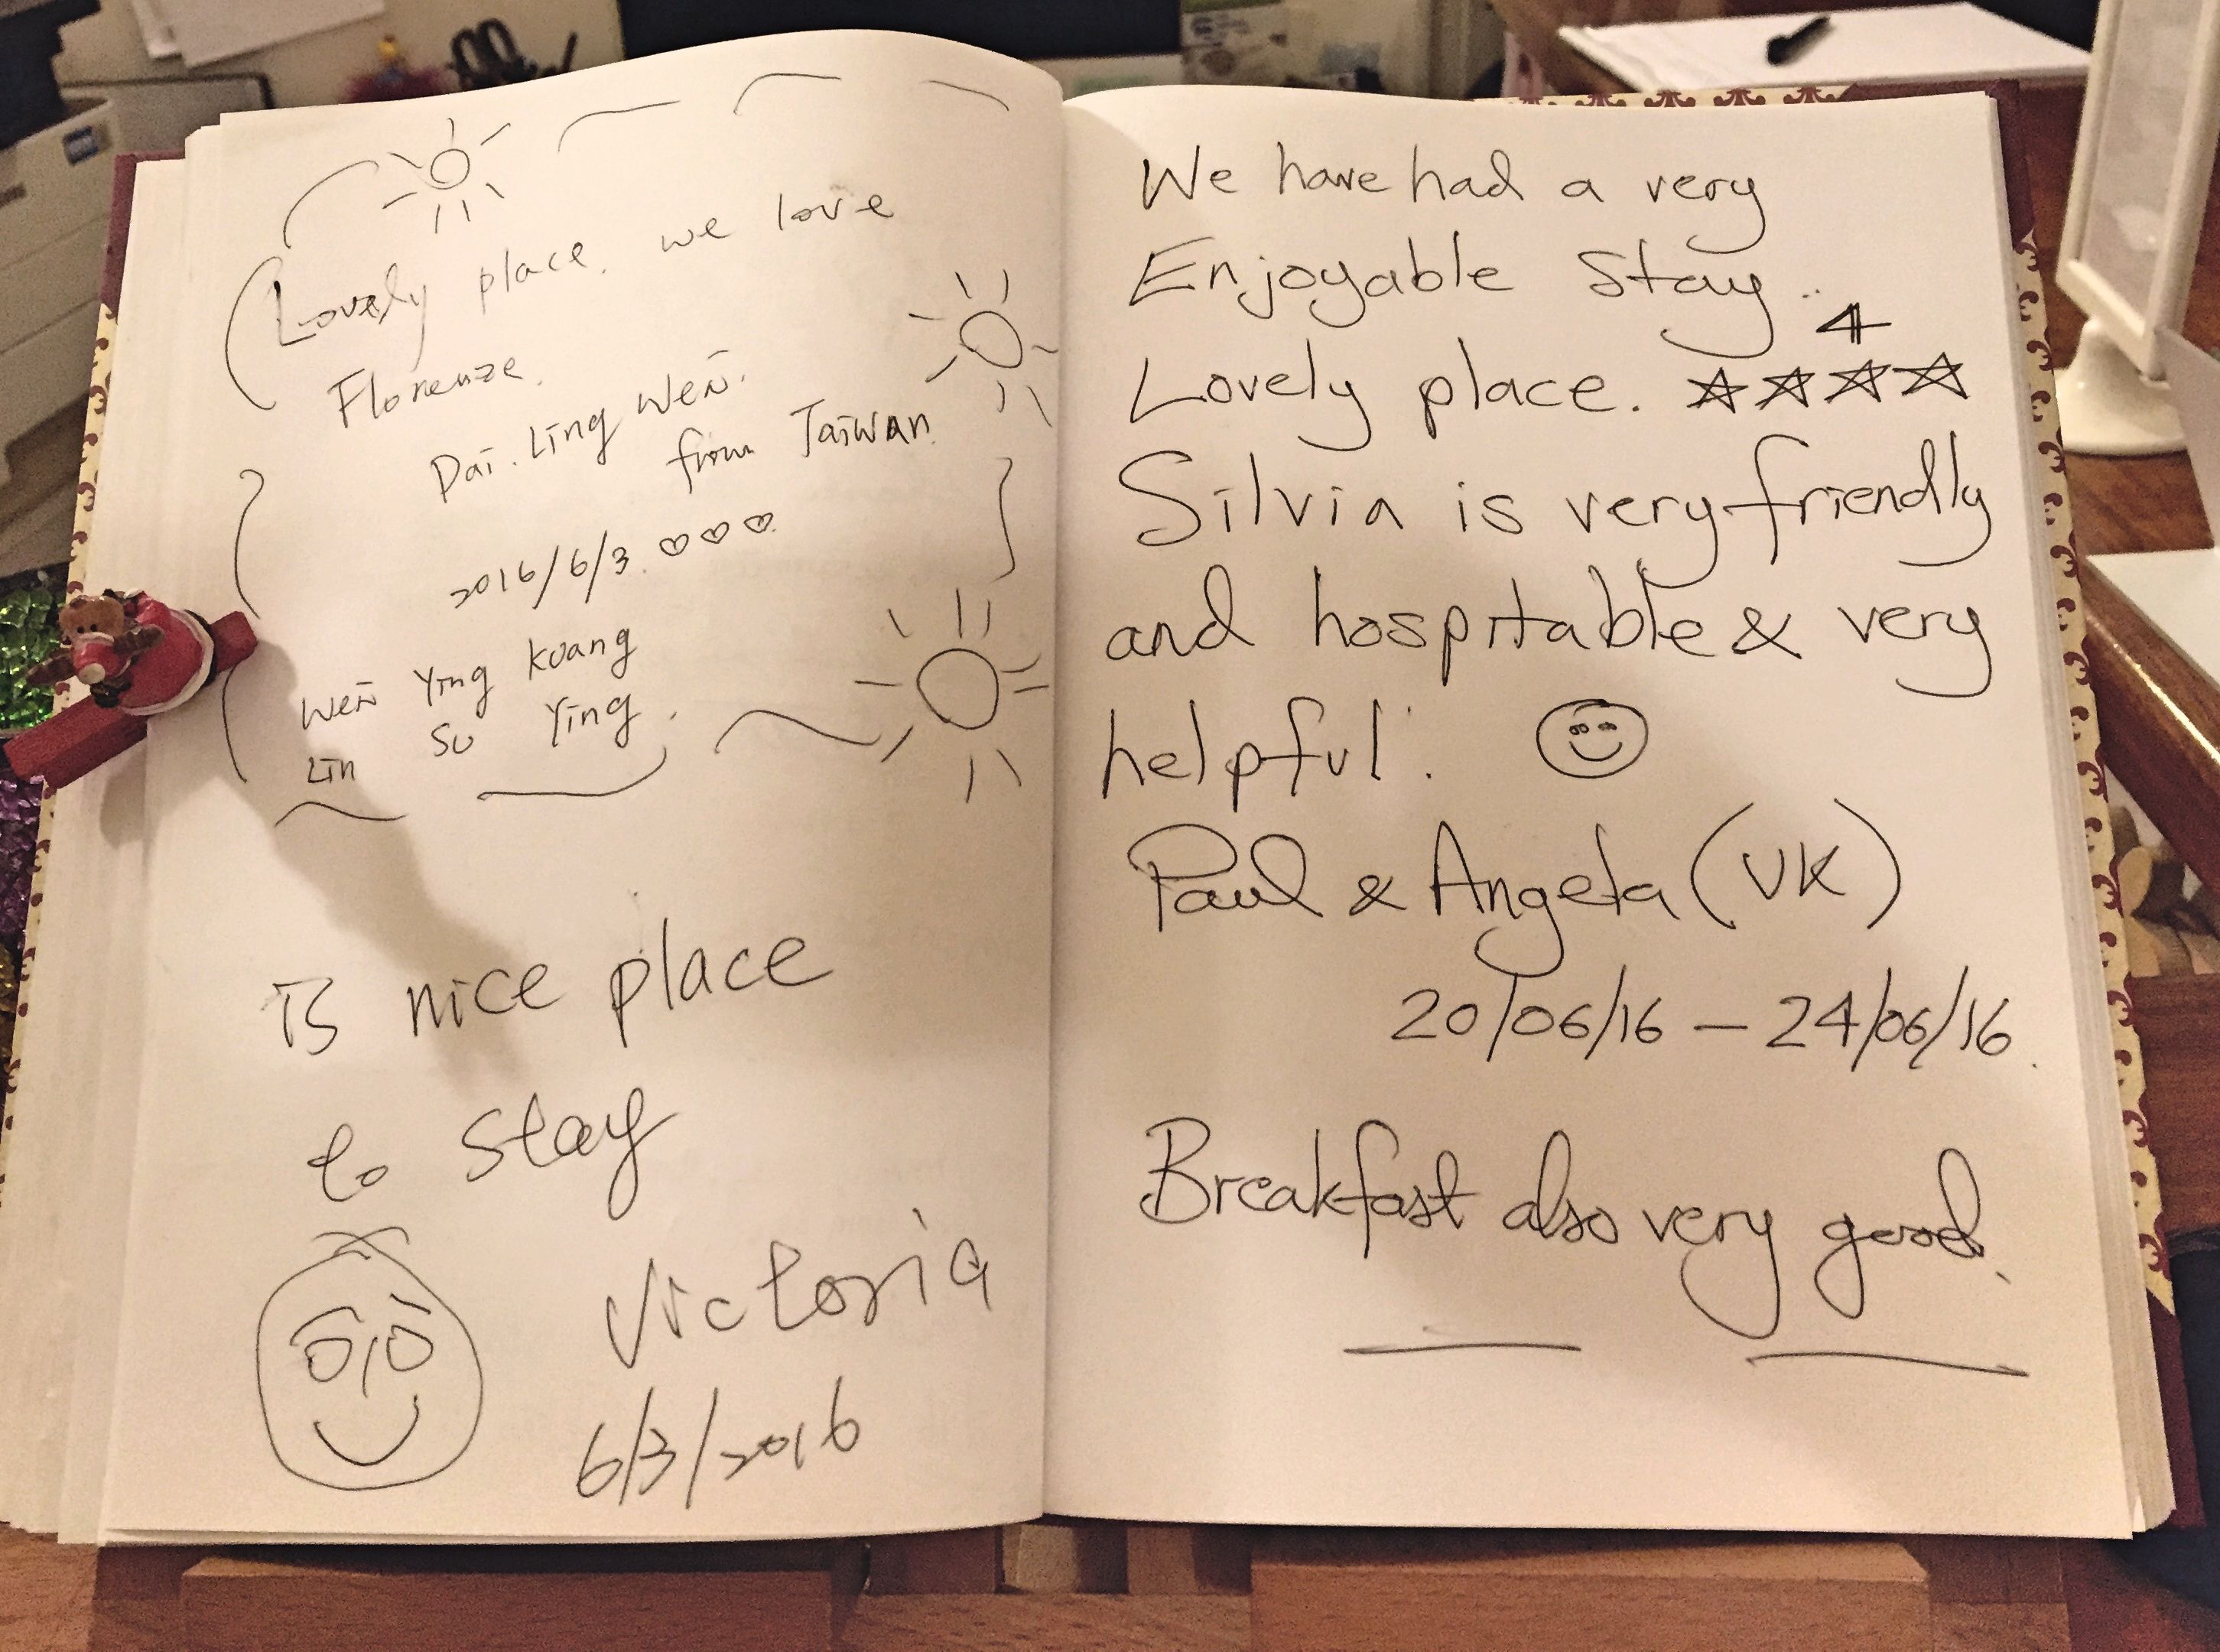 Lovely place. we love
Florenze.
Dai. Ling Wen.
from Taiwan.
2016/6/3 ♡♡♡
Wen Ying Kuang
Lin Su Ying.
Is nice place
to stay
Victoria
6/3/2016
We have had a very
Enjoyable Stay.
4
Lovely place. ☆☆☆☆
Silvia is very friendly
and hospitable & very
helpful.
Paul & Angela (UK)
20/06/16 – 24/06/16.
Breakfast also very good.